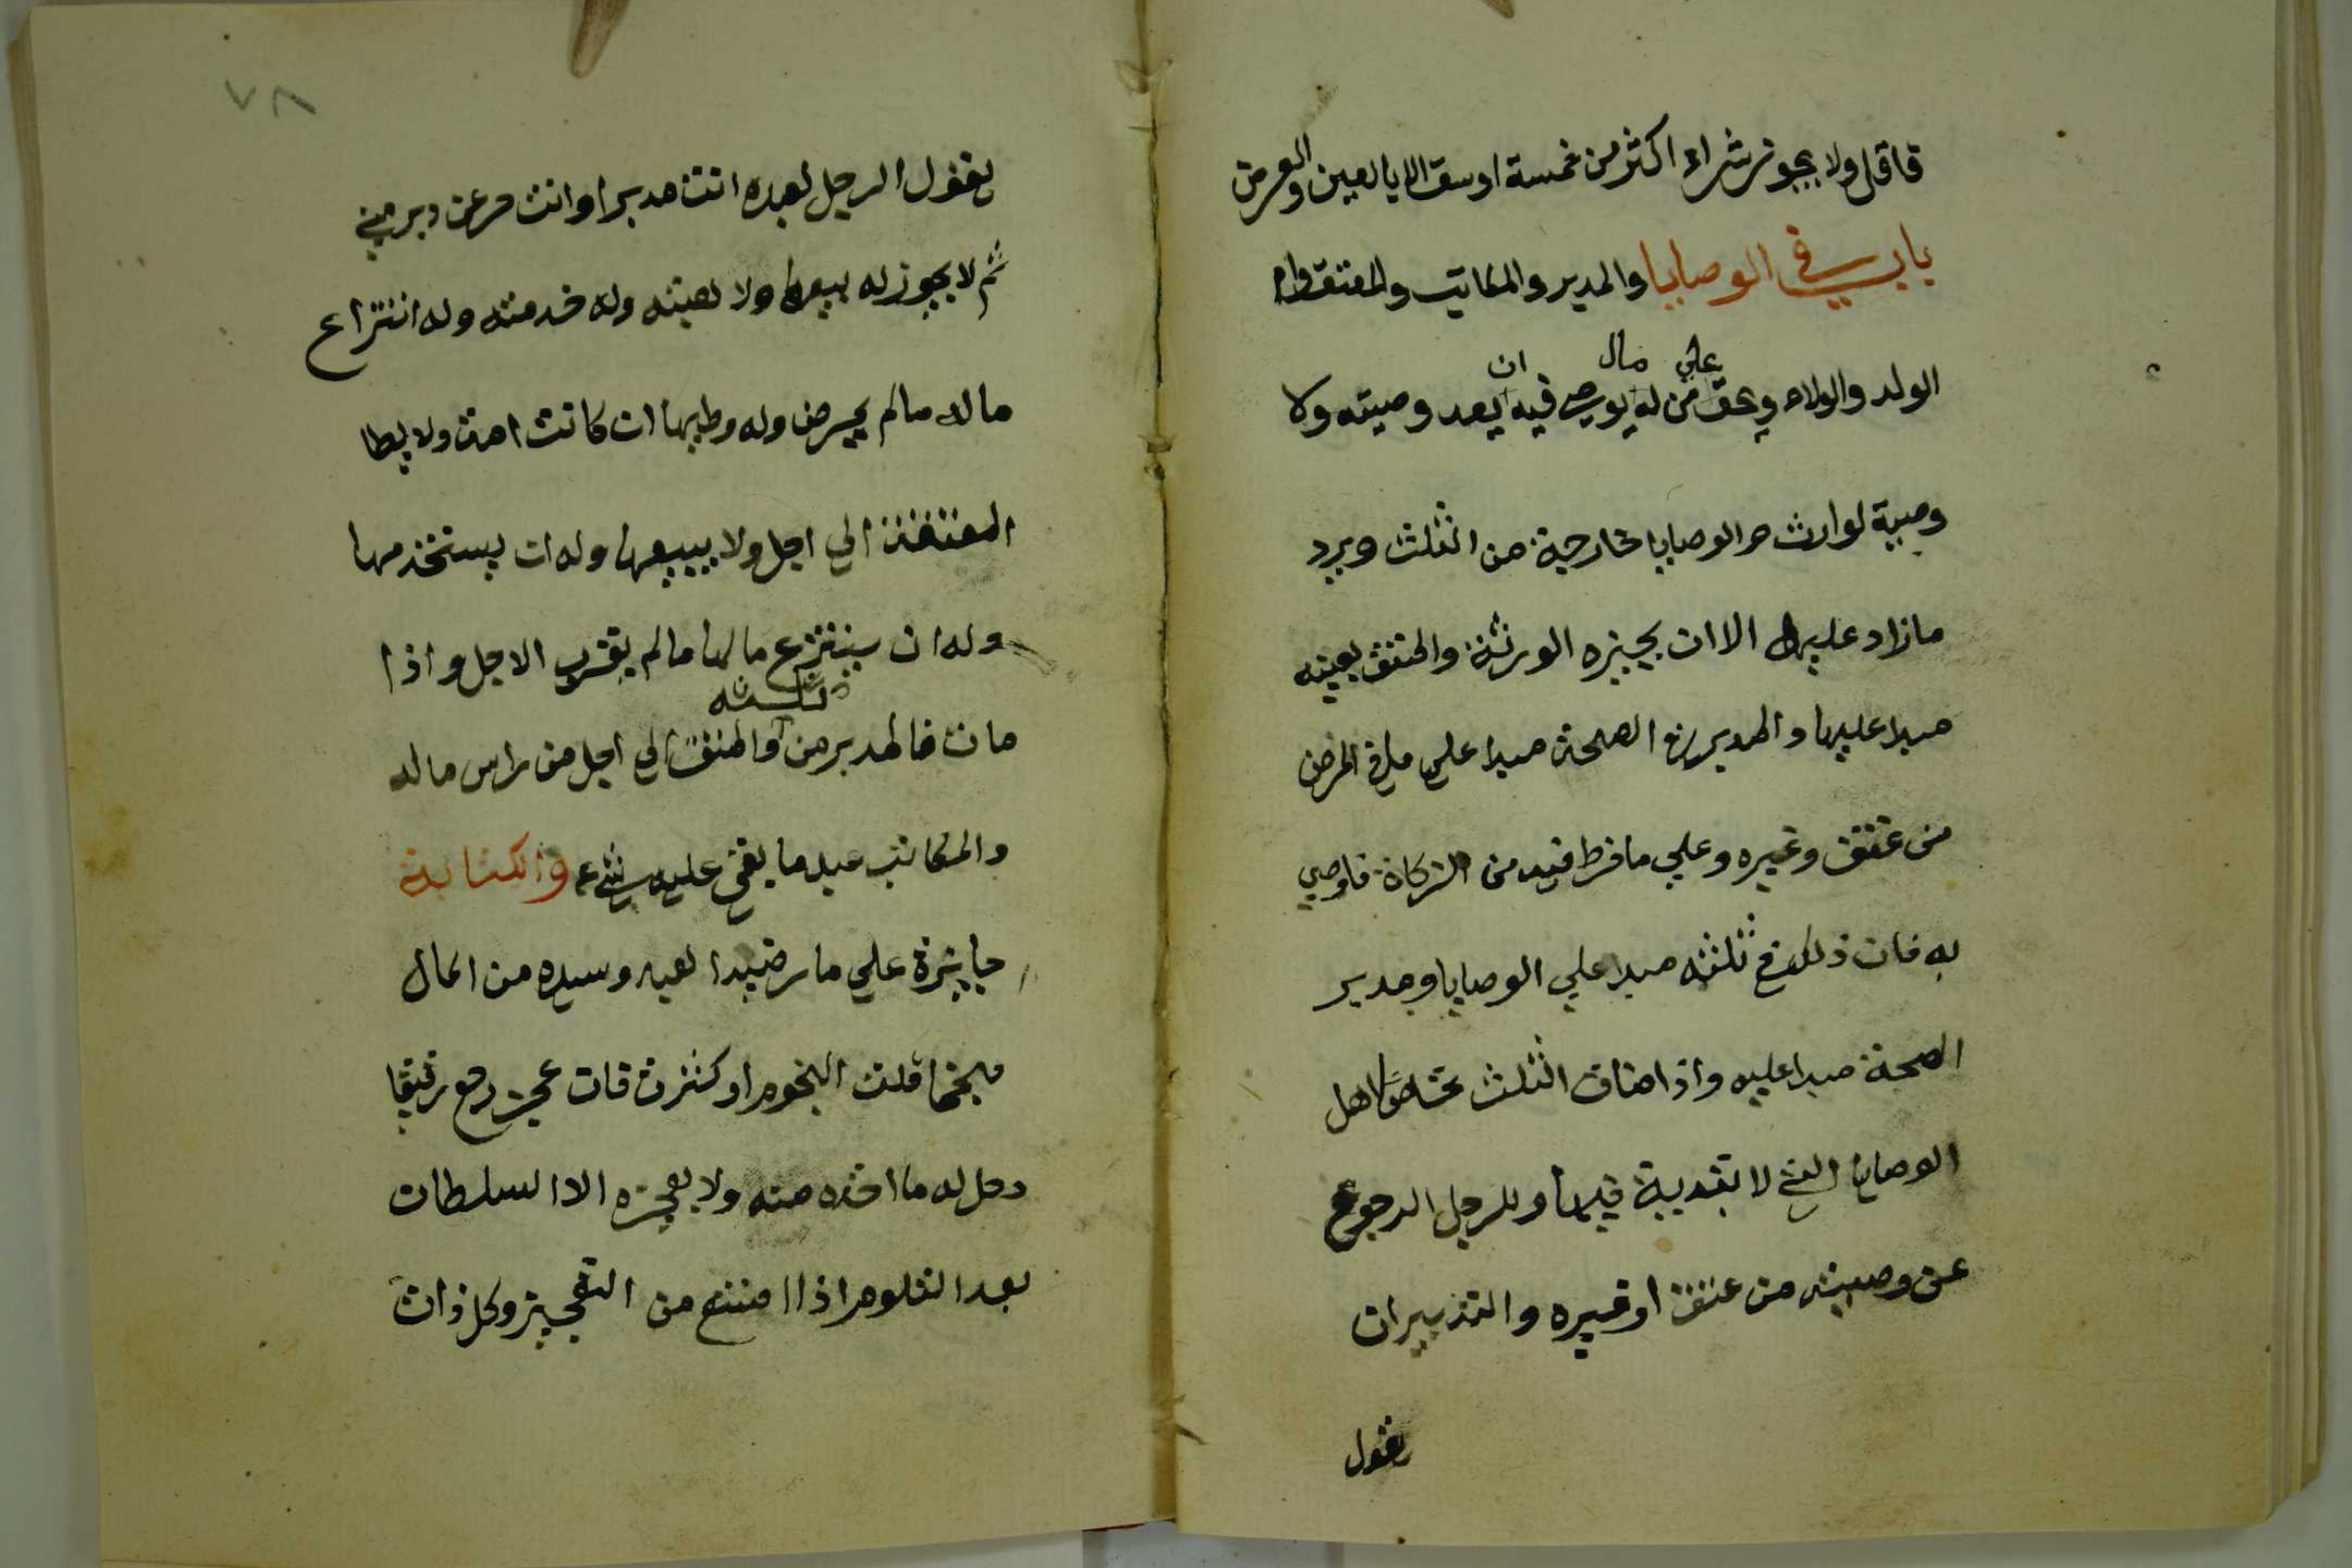 فاقل ولا يجوز شراء اكثر من خمسة اوسق الا بالعين والعرض
باب في الوصايا والمدبر والمكاتب والمعتق وام
الولد والولاء ويحق علي من له مال يوصي فيه ان يعد وصيته ولا
وصية لوارث والوصايا خارجة من الثلث ويرد
مازاد عليه الا ان يجيزه الورثة والعتق بعينه
مبدا عليها والمدبر في الصحة مبدا علي ما في المرض
من عتق وغيره وعلي ما فرط فيه من الزكاة فاوصي
به فان ذلك في ثلثه مبدا علي الوصايا ومدبر
الصحة مبدا عليه واذا ضاق الثلث تحاص اهل
الوصايا التي لا تبدية فيها وللرجل الرجوع
عن وصيته من عتق او غيره والتدبير ان
يقول
٧٨
يقول الرجل لعبده انت مدبر او انت حر عن دبر مني
ثم لا يجوز له بيعه ولا هبته وله خدمته وله انتزاع
ماله مالم يمرض وله وطيها ان كانت امة ولا يطا
المعتقة الي اجل ولا يبيعها وله ان يستخدمها
وله ان ينتزع مالها مالم يقرب الاجل واذا
مات فالمدبر من ثلثه والمعتق الي اجل من راس ماله
والمكاتب عبد ما بقي عليه شيء والكتابة
جايزة علي ما رضيه العبد وسيده من المال
منجما قلت النجوم او كثرت فان عجز رجع رقيقا
وحل له ما اخذه منه ولا يعجزه الا السلطان
بعد التلوم اذا امتنع من التعجيز وكل ذات